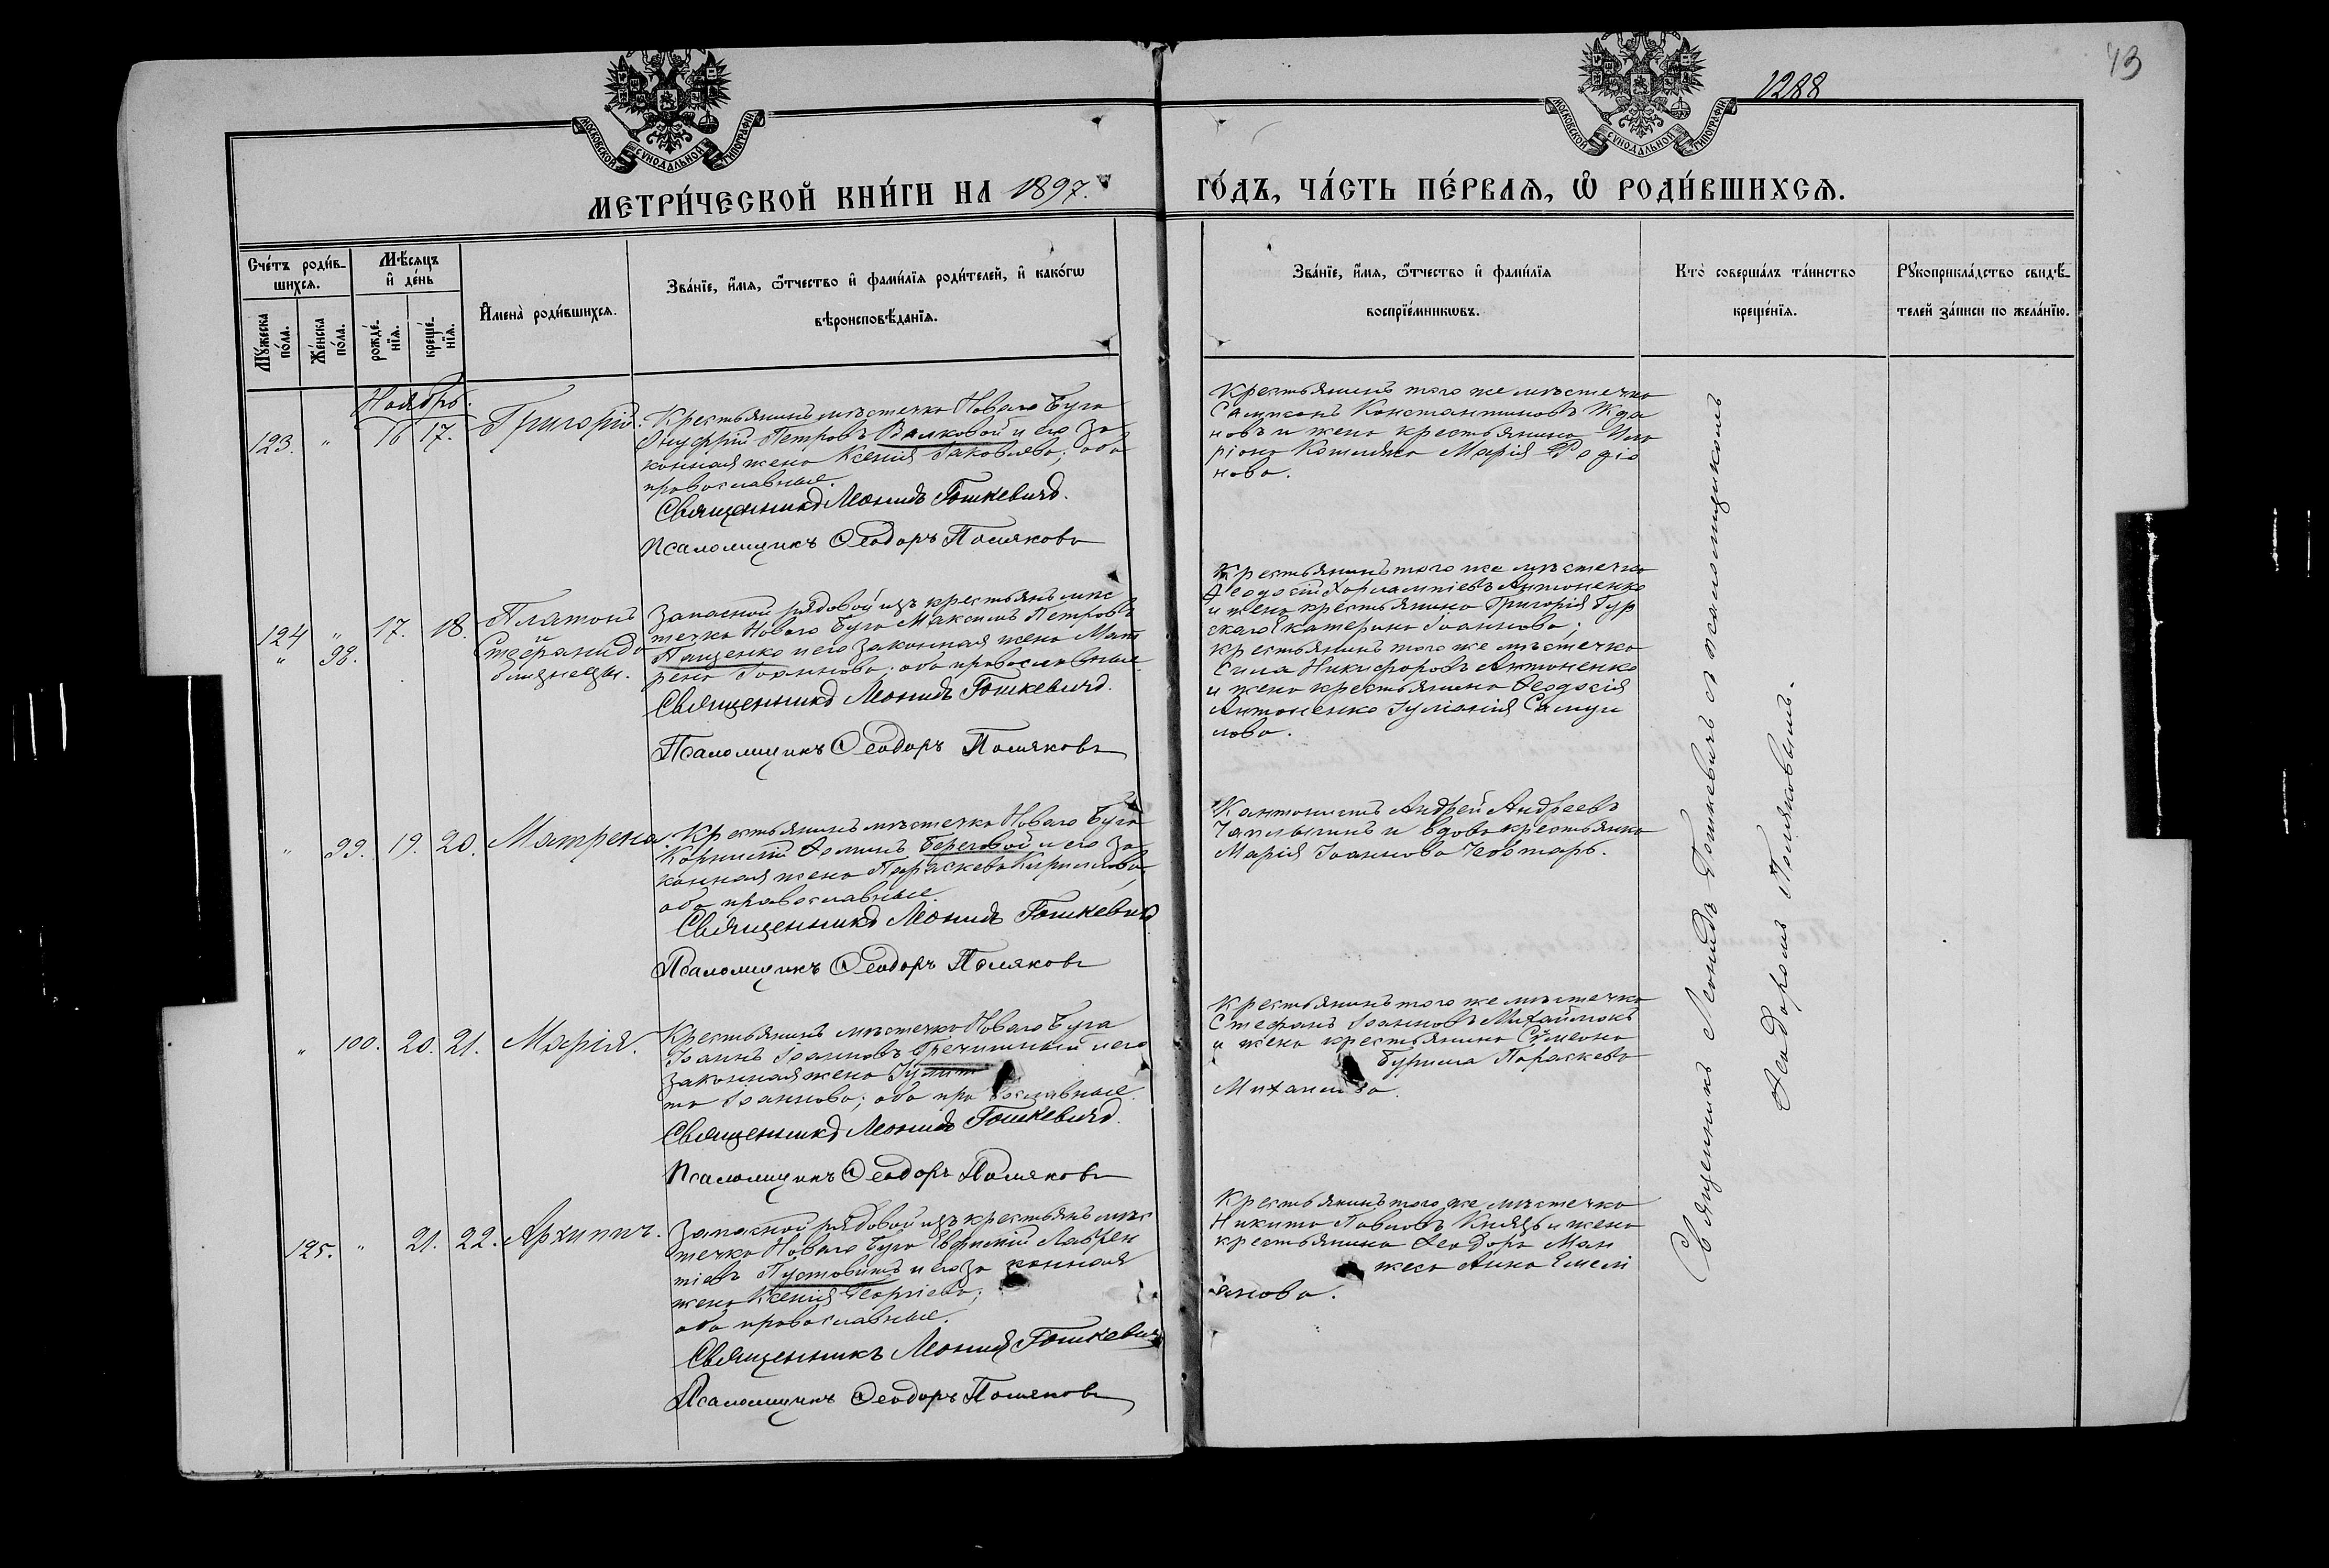 43
1288
МОСКОВСКОЙ СѴНОДАЛЬНОЙ ТИПОГРАФІИ
МОСКОВСКОЙ СѴНОДАЛЬНОЙ ТИПОГРАФІИ
МЕТРИ́ЧЕСКОЙ КНИ́ГИ НА 1897. ГО́ДЪ, ЧА́СТЬ ПЕ́РВАѦ, Ѽ РОДИ́ВШИХСѦ.
Сче́тъ роди́в-
шихсѧ.
Мꙋ́жеска
по́ла.
Же́нска
по́ла.
Мѣ́сѧцъ
и҆ де́нь
рожде́-
нїѧ.
креще́-
нїѧ.
И҆мена̀ роди́вшихсѧ.
Зва́нїе, и҆́мѧ, ѻ҆́тчество и҆ фами́лїѧ роди́телей, и҆ како́гѡ
вѣроисповѣ́данїѧ.
Зва́нїе, и҆́мѧ, ѻ҆́тчество и҆ фами́лїѧ
воспрїе́мникѡвъ.
Кто̀ соверша́лъ та́инство
креще́нїѧ.
Рꙋкоприкла́дство свидѣ́-
телей за́писи по жела́нїю.
Ноябрь.
123. " 16 17. Григорій.
Крестьянинъ мѣстечка Новаго Буга
Онуфрій Петровъ Валковой и его за
конная жена Ксенія Іаковлева; оба
православные.
Священникъ Леонидъ Гошкевичъ.
Псаломщикъ Ѳеодоръ Поляковъ
Крестьянинъ того же мѣстечка
Сампсонъ Константиновъ Жда
новъ и жена крестьянина Ила
ріона Марія Родіо
нова.
124 " 17. 18. Платонъ
" 98. й
Стефанида
близнецы.
Запасной рядовой изъ крестьянъ мѣс
течка Новаго Буга Максимъ Петровъ
Пащенко и его законная жена Мат
рена Іоаннова; оба православные.
Священникъ Леонидъ Гошкевичъ.
Псаломщикъ Ѳеодоръ Поляковъ
Крестьянинъ того же мѣстечка
Ѳеодосій Харлампіевъ Антоненко
и жена крестьянина Григорія Гур
скаго Екатерина Іоаннова;
крестьянинъ того же мѣстечка
Сила Никифоровъ Антоненко
и жена крестьянина Ѳеодосія
Антоненко Іуліанія Самуи
лова.
" 99. 19. 20. Матрена.
Крестьянинъ мѣстечка Новаго Буга
Корнилій Ѳоминъ Береговой и его за
конная жена Параскева Кириллова,
оба православные.
Священникъ Леонидъ Гошкевичъ
Псаломщикъ Ѳеодоръ Поляковъ
Кантонистъ Андрей Андреевъ
Чаплыгинъ и вдова крестьянка
Марія Іоаннова Чоботарь.
" 100. 20. 21. Марія.
Крестьянинъ мѣстечка Новаго Буга
Іоаннъ Іоанновъ Гречишный и его
законная жена Іулит
та Іоаннова; оба православные.
Священникъ Леонидъ Гошкевичъ.
Псаломщикъ Ѳеодоръ Поляковъ
Крестьянинъ того же мѣстечка
Стефанъ Іоанновъ Михайлюкъ
и жена крестьянина Сѵмеона
Бурила Параскева
Михаилова.
125. " 21. 22. Архиппъ.
Запасной рядовой изъ крестьянъ мѣс
течка Новаго Буга Евфимій Лаврен
тіевъ Пустовитъ и его законная
жена Ксенія Георгіева;
оба православные.
Священникъ Леонидъ Гошкевичъ
Псаломщикъ Ѳеодоръ Поляковъ
Крестьянинъ того же мѣстечка
Никита Павловъ Князь и жена
крестьянина Ѳеодора Ман
жеса Анна Емели
янова.
Священникъ Леонидъ Гошкевичъ съ псаломщикомъ
Ѳеодоромъ Поляковымъ.